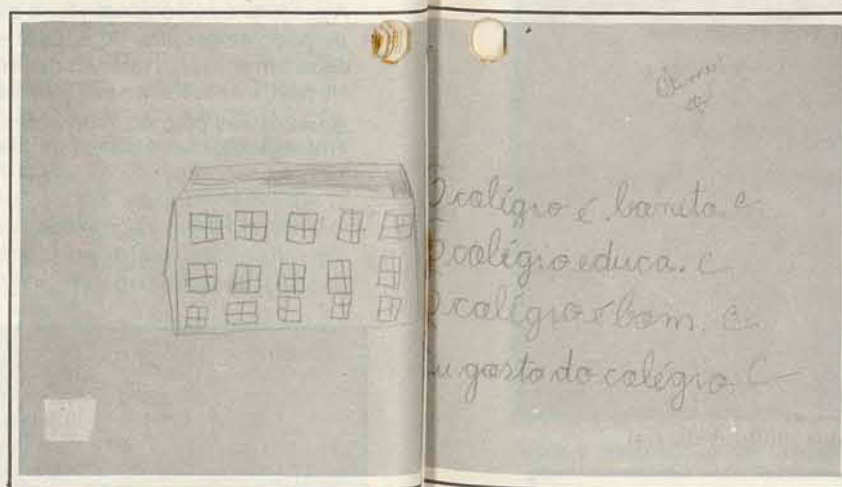 O colégio é bonito. C
O colégio educa. C
O colégio é bom. C
Eu gosto do colégio. C